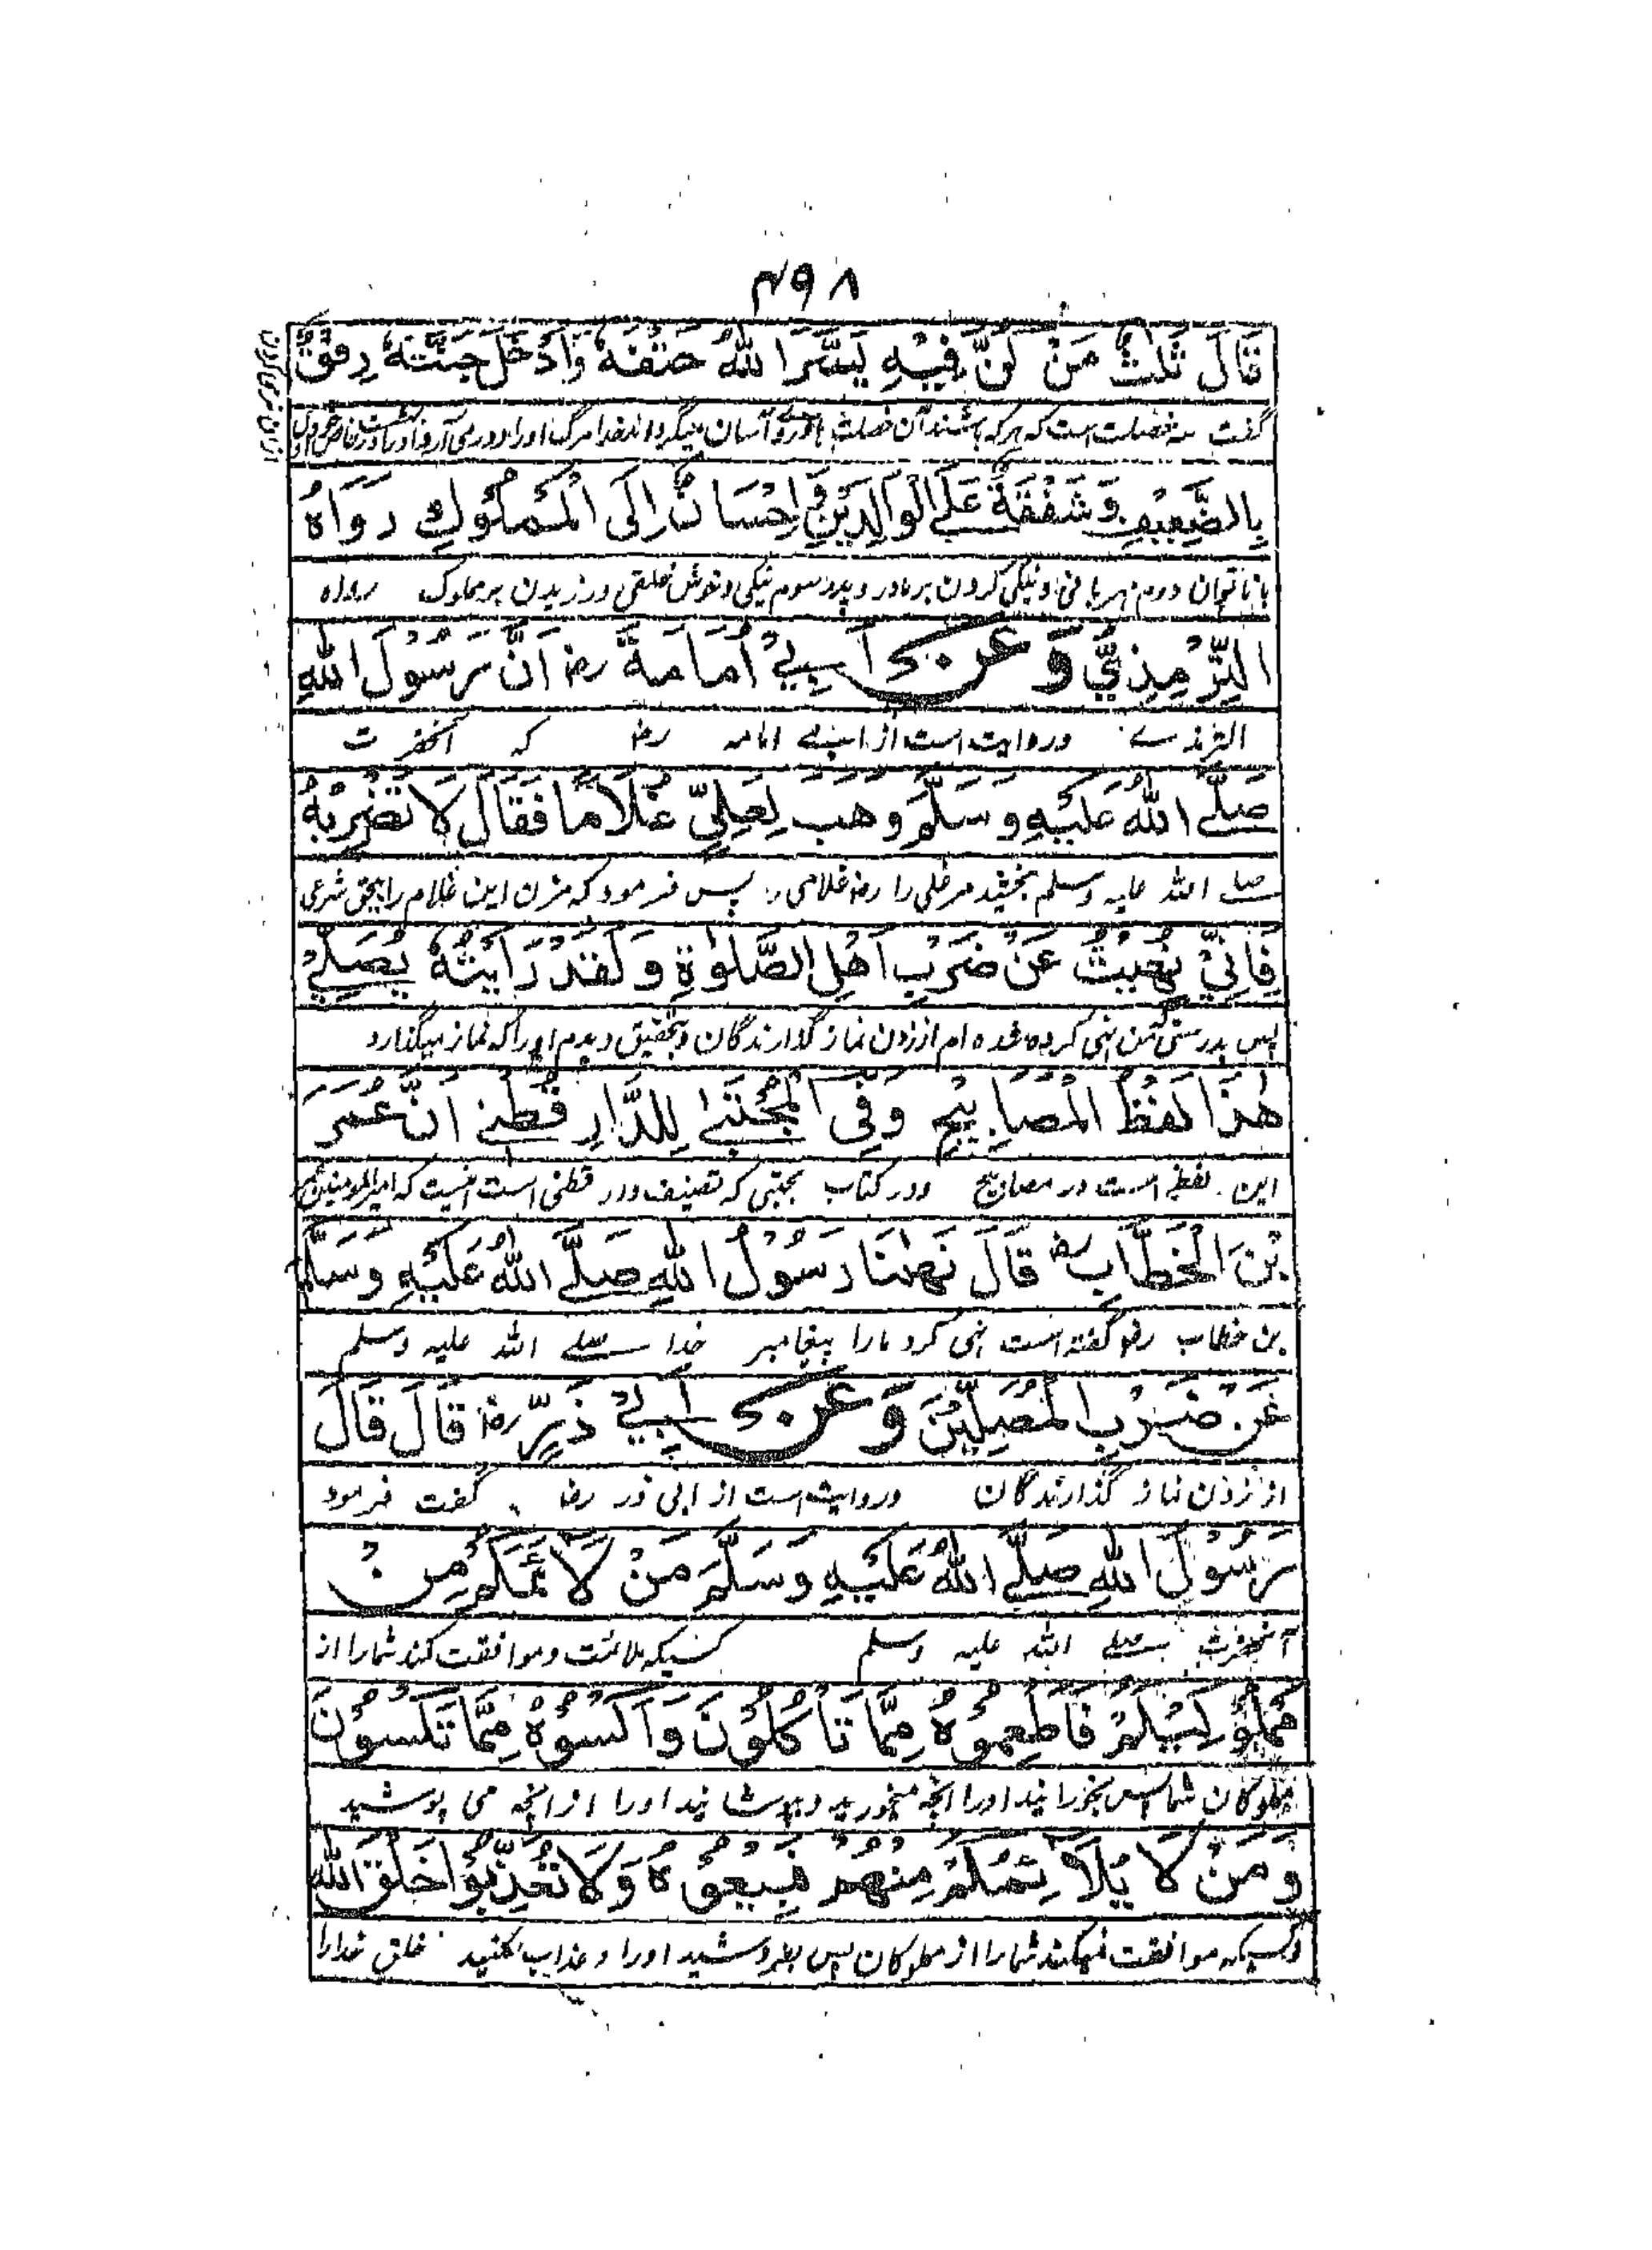 ۴۹۸
قَالَ ثَلٰثٌ مَنْ كُنَّ فِيْهِ يَسَّرَ اللهُ حَتْفَهٗ وَاَدْخَلَ جَنَّتَهٗ رِفْقٌ
گفت سه خصلت است که هر که باشند آن خصلت آسان میگرداند خدا مرگ او را و در می آرد او را
بِالضَّعِيْفِ وَشَفَقَةٌ عَلَى الْوَالِدَيْنِ وَاِحْسَانٌ اِلَى الْمَمْلُوْكِ رَوَاهُ
با ناتوان دوم مهربانی و نیکی کردن بر مادر و پدر سوم نیکی و خوش خلقی ورزیدن بر مملوک رواه
التِّرْمِذِيُّ وَعَنْ اَبِيْ اُمَامَةَ رض اَنَّ رَسُوْلَ اللهِ
الترمذے و روایت است از ابے امامه رض که آنحضرت
صَلَّے اللهُ عَلَيْهِ وَسَلَّمَ وَهَبَ لِعَلِيٍّ غُلَامًا فَقَالَ لَا تَضْرِبْهُ
صلے الله علیه وسلم بخشید مر علی را رض غلامی را پس فرمود که مزن این غلام را بحق شرعی
فَاِنِّيْ نُهِيْتُ عَنْ ضَرْبِ اَهْلِ الصَّلٰوةِ وَلَقَدْ رَاَيْتُهٗ يُصَلِّيْ
پس بدرستی من نهی کرده شده ام از زدن نماز گذارندگان و بتحقیق دیدم او را که نماز میگذارد
هٰذَا لَفْظُ الْمَصَابِيْحِ وَفِي الْمُجْتَبٰے لِلدَّارِ قُطْنِے اَنَّ عُمَرَ
این لفظ است در مصابیح و در کتاب مجتبی که تصنیف دار قطنی است اینست که امیرالمومنین
بْنَ الْخَطَّابِ رض قَالَ نَهٰنَا رَسُوْلُ اللهِ صَلَّے اللهُ عَلَيْهِ وَسَلَّمَ
بن خطاب رض گفته است نهی کرد ما را پیغامبر خدا صلے الله علیه وسلم
عَنْ ضَرْبِ الْمُصَلِّيْنَ وَعَنْ اَبِيْ ذَرٍّ رض قَالَ قَالَ
از زدن نماز گذارندگان و روایت است از ابی ذر رض گفت فرمود
رَسُوْلُ اللهِ صَلَّے اللهُ عَلَيْهِ وَسَلَّمَ مَنْ لَاءَمَكُمْ مِنْ
آنحضرت صلے الله علیه وسلم کسیکه ملائمت و موافقت کند شما را از
مَمْلُوْكِيْكُمْ فَاَطْعِمُوْهُ مِمَّا تَاْكُلُوْنَ وَاَكْسُوْهُ مِمَّا تَكْسُوْنَ
مملوکان شما پس بخورانید او را انچه میخورید و بپوشانید او را از انچه می پوشید
وَمَنْ لَا يُلَائِمُكُمْ مِنْهُمْ فَبِيْعُوْهُ وَلَا تُعَذِّبُوْا خَلْقَ اللهِ
و کسیکه موافقت نمیکند شما را از مملوکان پس بفروشید او را و عذاب نکنید خلق خدا را